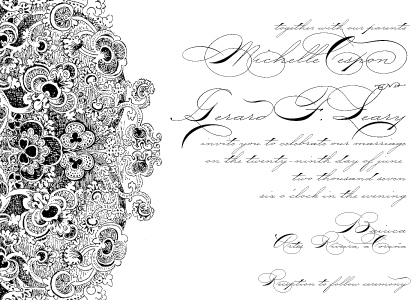 together with our parents
Michelle Cespon
and
Gerard F. Leary
invite you to celebrate our marriage
on the twenty-ninth day of june
two thousand seven
six o'clock in the evening
Reception to follow ceremony